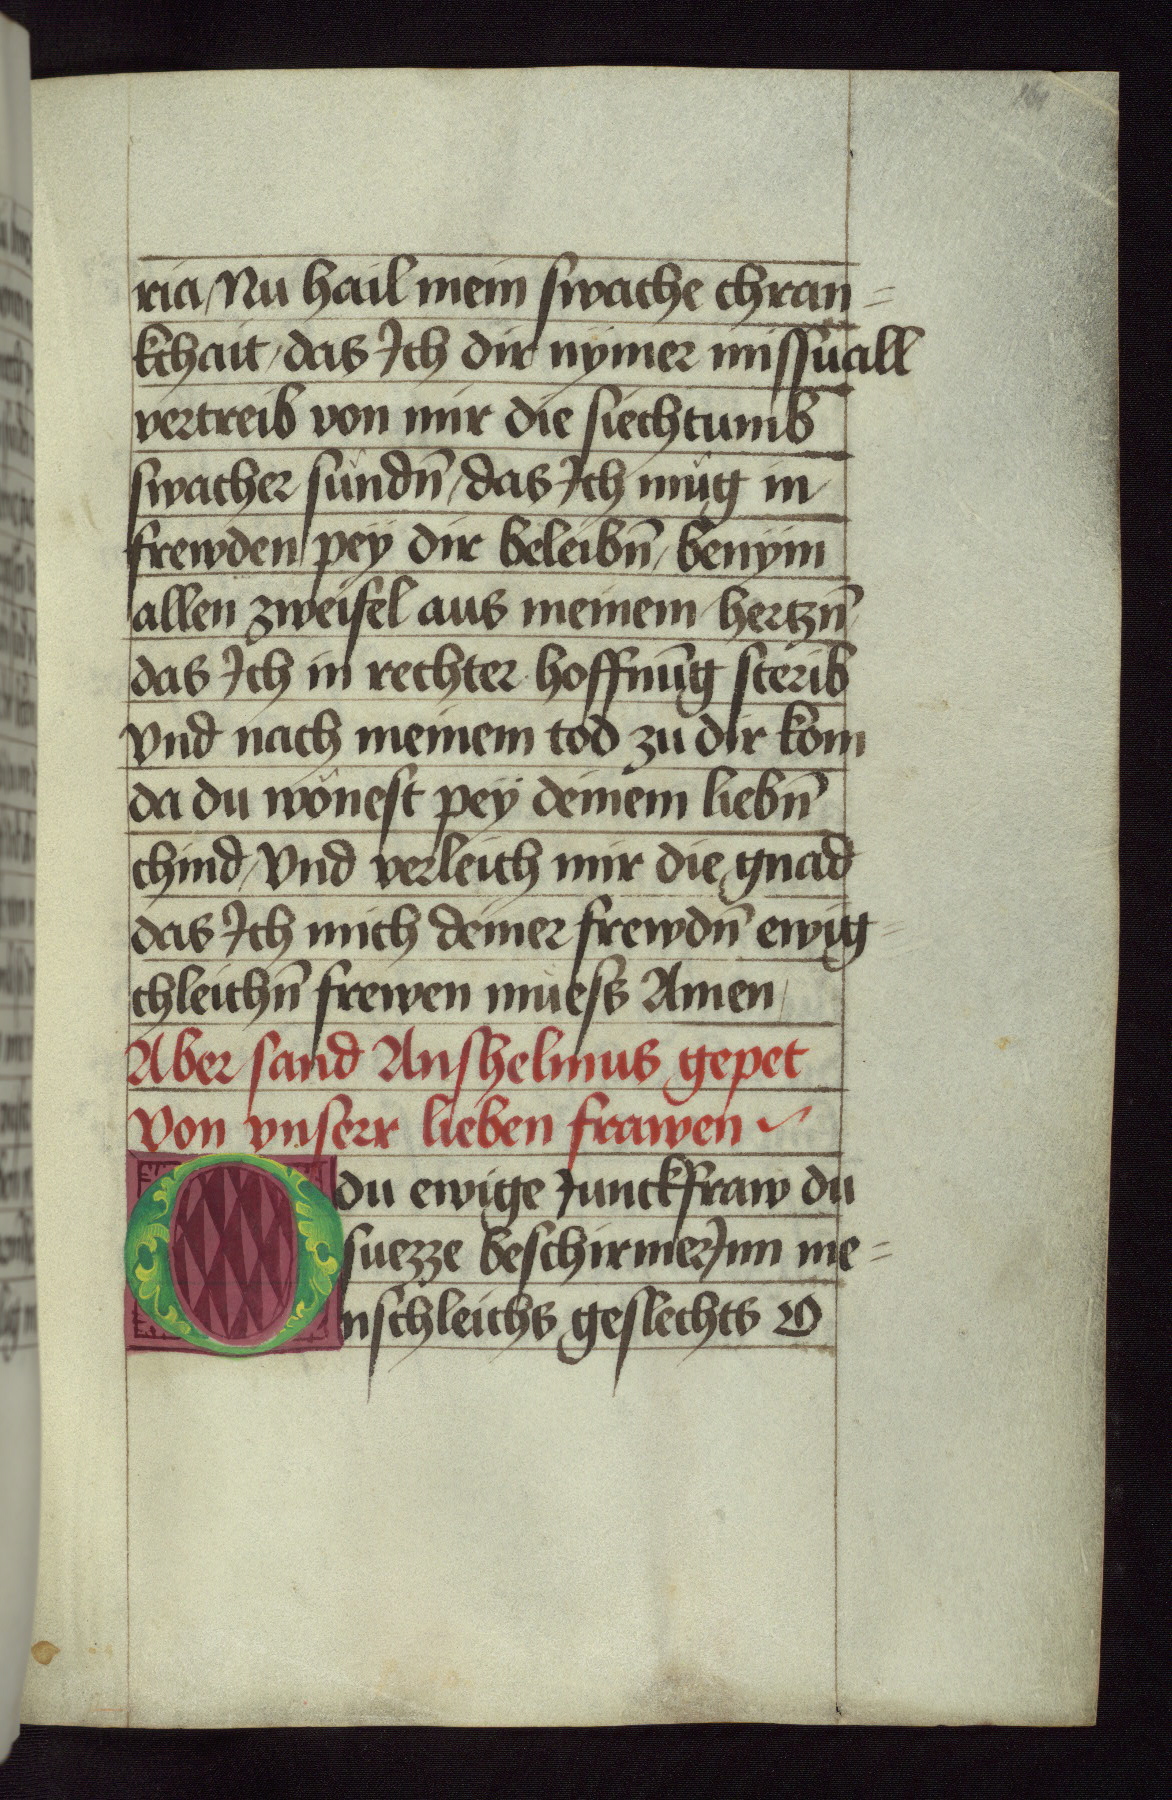 ria / Nu hail mein swache chran=
kchait / das Ich dir nÿmer missuall
vertreib von mir die siechtumb
swacher sündn̄ / das Ich müg in
frewden pey dir beleibn̄ / benÿm
allen zweifel aus meinem hertzn̄
das Ich in rechter hoffnūg sterib
Vnd nach meinem tod zu dir kom
da du wonest peÿ deinem liebn̄
chind / Vnd verleich mir die gnad
das Ich mich deiner frewdn̄ ewig=
chleichn̄ frewen muess Amen /
Aber sand Anshelmus gepet
Von vnserr lieben frawen
O du ewige Junckfraw du
suezze beschirmerInn me=
nschleichs geslechts O